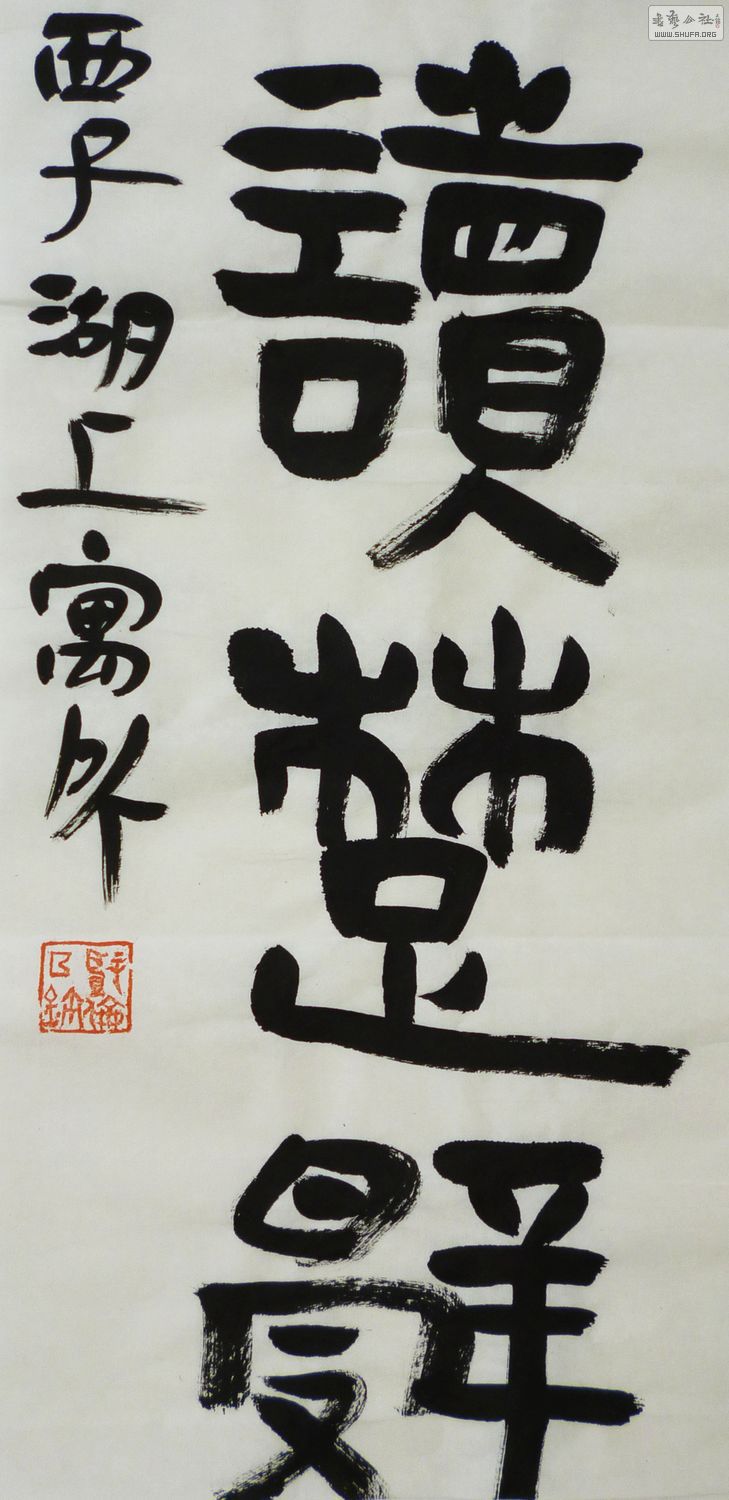 書藝公社
WWW.SHUFA.ORG
讀楚辭
西子湖上寓所